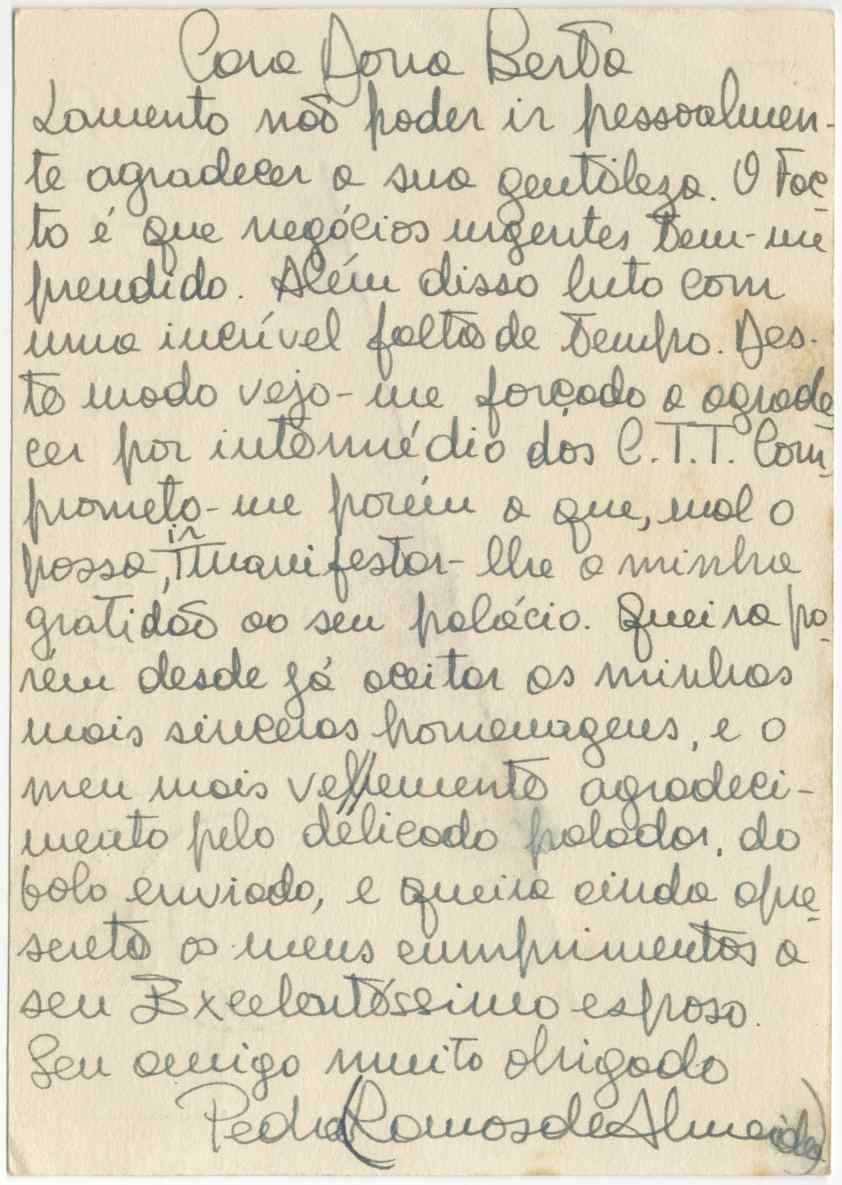 Cara Dona Berta
Lamento não poder ir pessoalmen-
te agradecer a sua gentileza. O fac-
to é que negócios urgentes tem-me
prendido. Além disso luto com
uma incrível falta de tempo. Des-
te modo vejo-me forçado a agrade-
cer por intermédio dos C.T.T. Com-
prometo-me porém a que, mal o
possa, ir manifestar-lhe a minha
gratidão ao seu palácio. Queira po-
rém desde já aceitar as minhas
mais sinceras homenagens, e o
meu mais veemente agradeci-
mento pelo delicado paladar, do
bolo enviado, e queira ainda apre-
sente os meus cumprimentos a
seu Excelentíssimo esposo.
Seu amigo muito obrigado
Pedro (Ramos de Almeida)